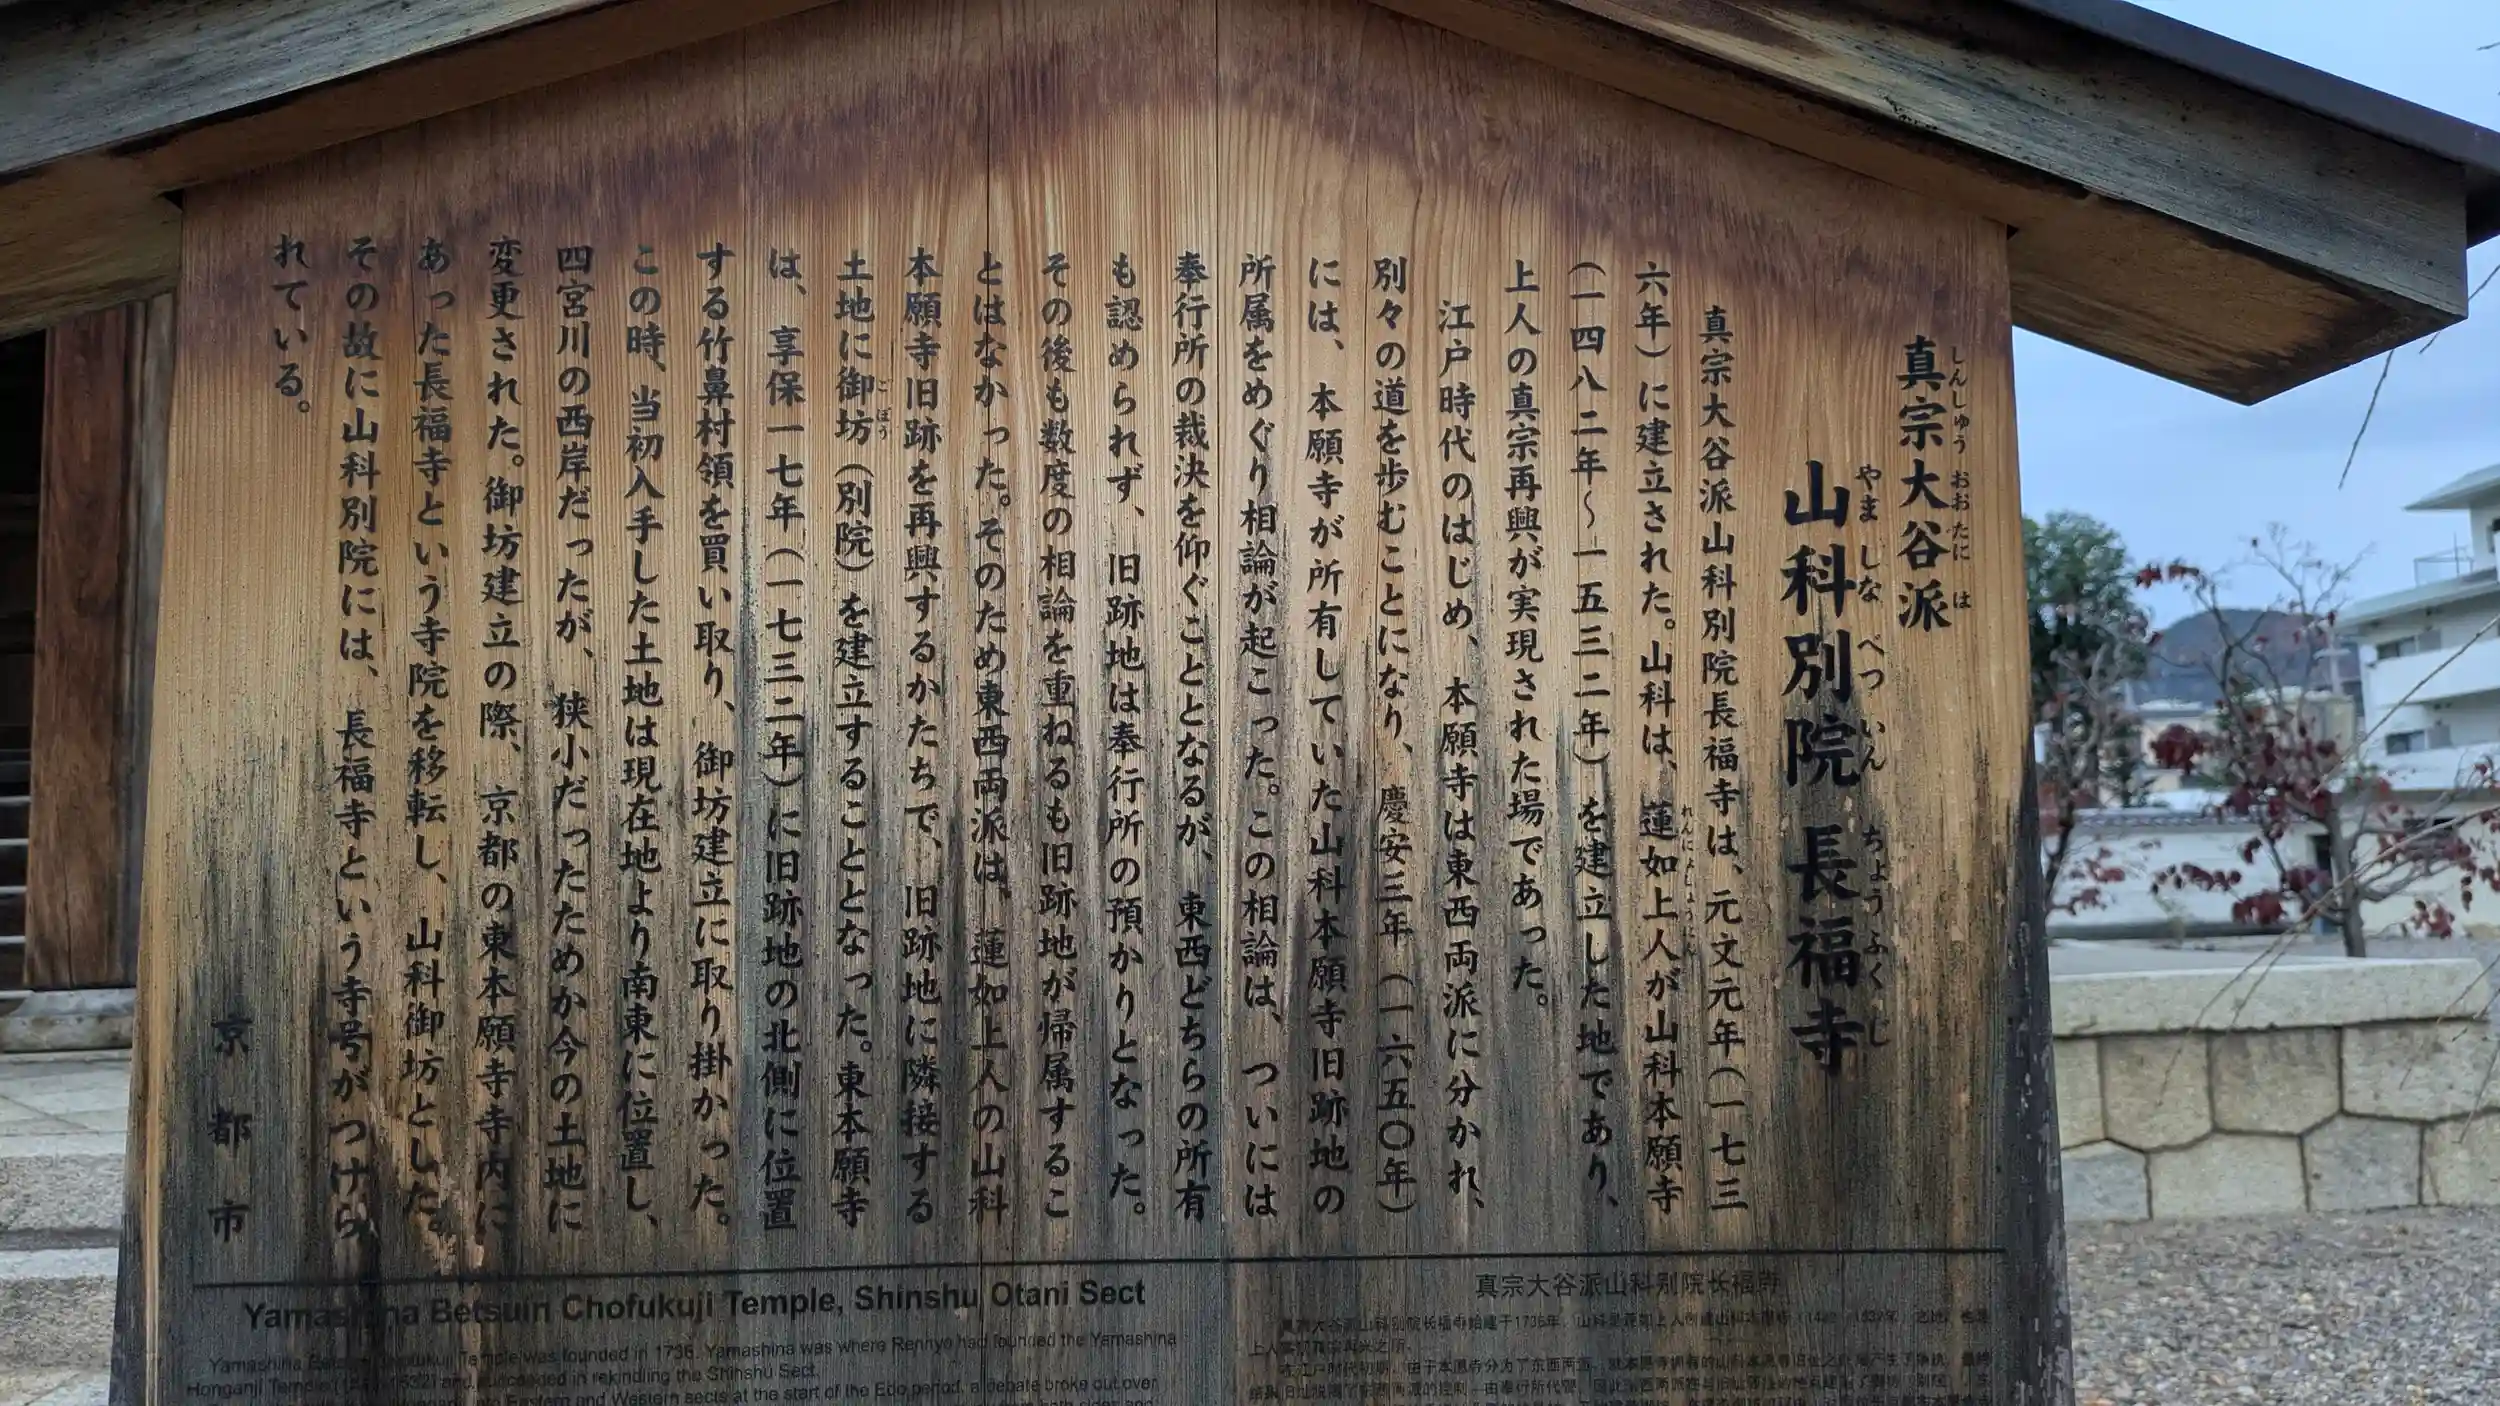 真宗大谷派
しんしゅうおおたには
山科別院 長福寺
やましなべついん ちょうふくじ
真宗大谷派山科別院長福寺は、元文元年（一七三
六年）に建立された。山科は、蓮如上人が山科本願寺
れんにょしょうにん
（一四八二年～一五三二年）を建立した地であり、
上人の真宗再興が実現された場であった。
江戸時代のはじめ、本願寺は東西両派に分かれ、
別々の道を歩むことになり、慶安三年（一六五〇年）
には、本願寺が所有していた山科本願寺旧跡地の
所属をめぐり相論が起こった。この相論は、ついには
奉行所の裁決を仰ぐこととなるが、東西どちらの所有
も認められず、旧跡地は奉行所の預かりとなった。
その後も数度の相論を重ねるも旧跡地が帰属するこ
とはなかった。そのため東西両派は、蓮如上人の山科
本願寺旧跡を再興するかたちで、旧跡地に隣接する
土地に御坊（別院）を建立することとなった。東本願寺
ごぼう
は、享保一七年（一七三二年）に旧跡地の北側に位置
する竹鼻村領を買い取り、御坊建立に取り掛かった。
この時、当初入手した土地は現在地より南東に位置し、
四宮川の西岸だったが、狭小だったためか今の土地に
変更された。御坊建立の際、京都の東本願寺寺内に
あった長福寺という寺院を移転し、山科御坊とした。
その故に山科別院には、長福寺という寺号がつけら
れている。
京都市
Yamashina Betsuin Chofukuji Temple, Shinshu Otani Sect
Yamashina Betsuin Chofukuji Temple was founded in 1736. Yamashina was where Rennyo had founded the Yamashina
Honganji Temple and succeeded in rekindling the Shinshu Sect.
Eastern and Western sects at the start of the Edo period, a debate broke out over
真宗大谷派山科别院长福寺
真宗大谷派山科别院长福寺始建于1736年。